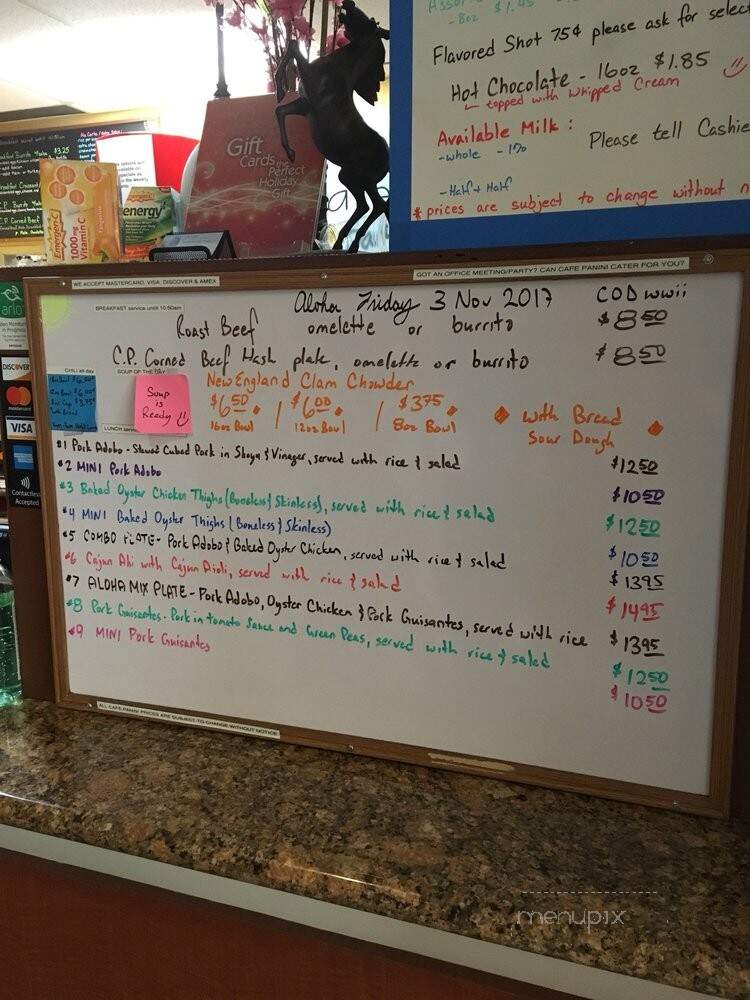 - 8oz $1.45
Flavored Shot 75¢ please ask for
Hot Chocolate - 16oz $1.85
topped with Whipped Cream
Available Milk : Please tell
- whole - 1%
- Half + Half
* prices are subject to change without
$3.25
Gift
Cards the
Perfect
Holiday
Gift
Emergen-C
1,000 mg
Vitamin C
energy
WE ACCEPT MASTERCARD, VISA, DISCOVER & AMEX
GOT AN OFFICE MEETING/PARTY? CAN CAFE PANINI CATER FOR YOU?
BREAKFAST service until 10:50am
Aloha Friday 3 Nov 2017 COD wwii
Roast Beef omelette or burrito $8.50
C.P. Corned Beef Hash plate, omelette or burrito $8.50
CHILI all day
SOUP OF THE DAY
New England Clam Chowder
Soup
is
Ready
$6.50 / $6.00 / $3.75 with Bread
16oz Bowl 12oz Bowl 8oz Bowl Sour Dough
#1 Pork Adobo - Stewed Cubed Pork in Shoyu & Vinegar, served with rice & salad $12.50
#2 MINI Pork Adobo $10.50
#3 Baked Oyster Chicken Thighs (Boneless & Skinless), served with rice & salad $12.50
#4 MINI Baked Oyster Thighs (Boneless & Skinless) $10.50
#5 COMBO PLATE - Pork Adobo & Baked Oyster Chicken, served with rice & salad $13.95
#6 Cajun Ahi with Cajun Aioli, served with rice & salad $14.95
#7 ALOHA MIX PLATE - Pork Adobo, Oyster Chicken & Pork Guisantes, served with rice $13.95
#8 Pork Guisantes - Pork in tomato Sauce and Green Peas, served with rice & salad $12.50
#9 MINI Pork Guisantes $10.50
ALL CAFE PANINI PRICES ARE SUBJECT TO CHANGE WITHOUT NOTICE
arlo
DISCOVER
mastercard
VISA
Contactless
Accepted
menupix